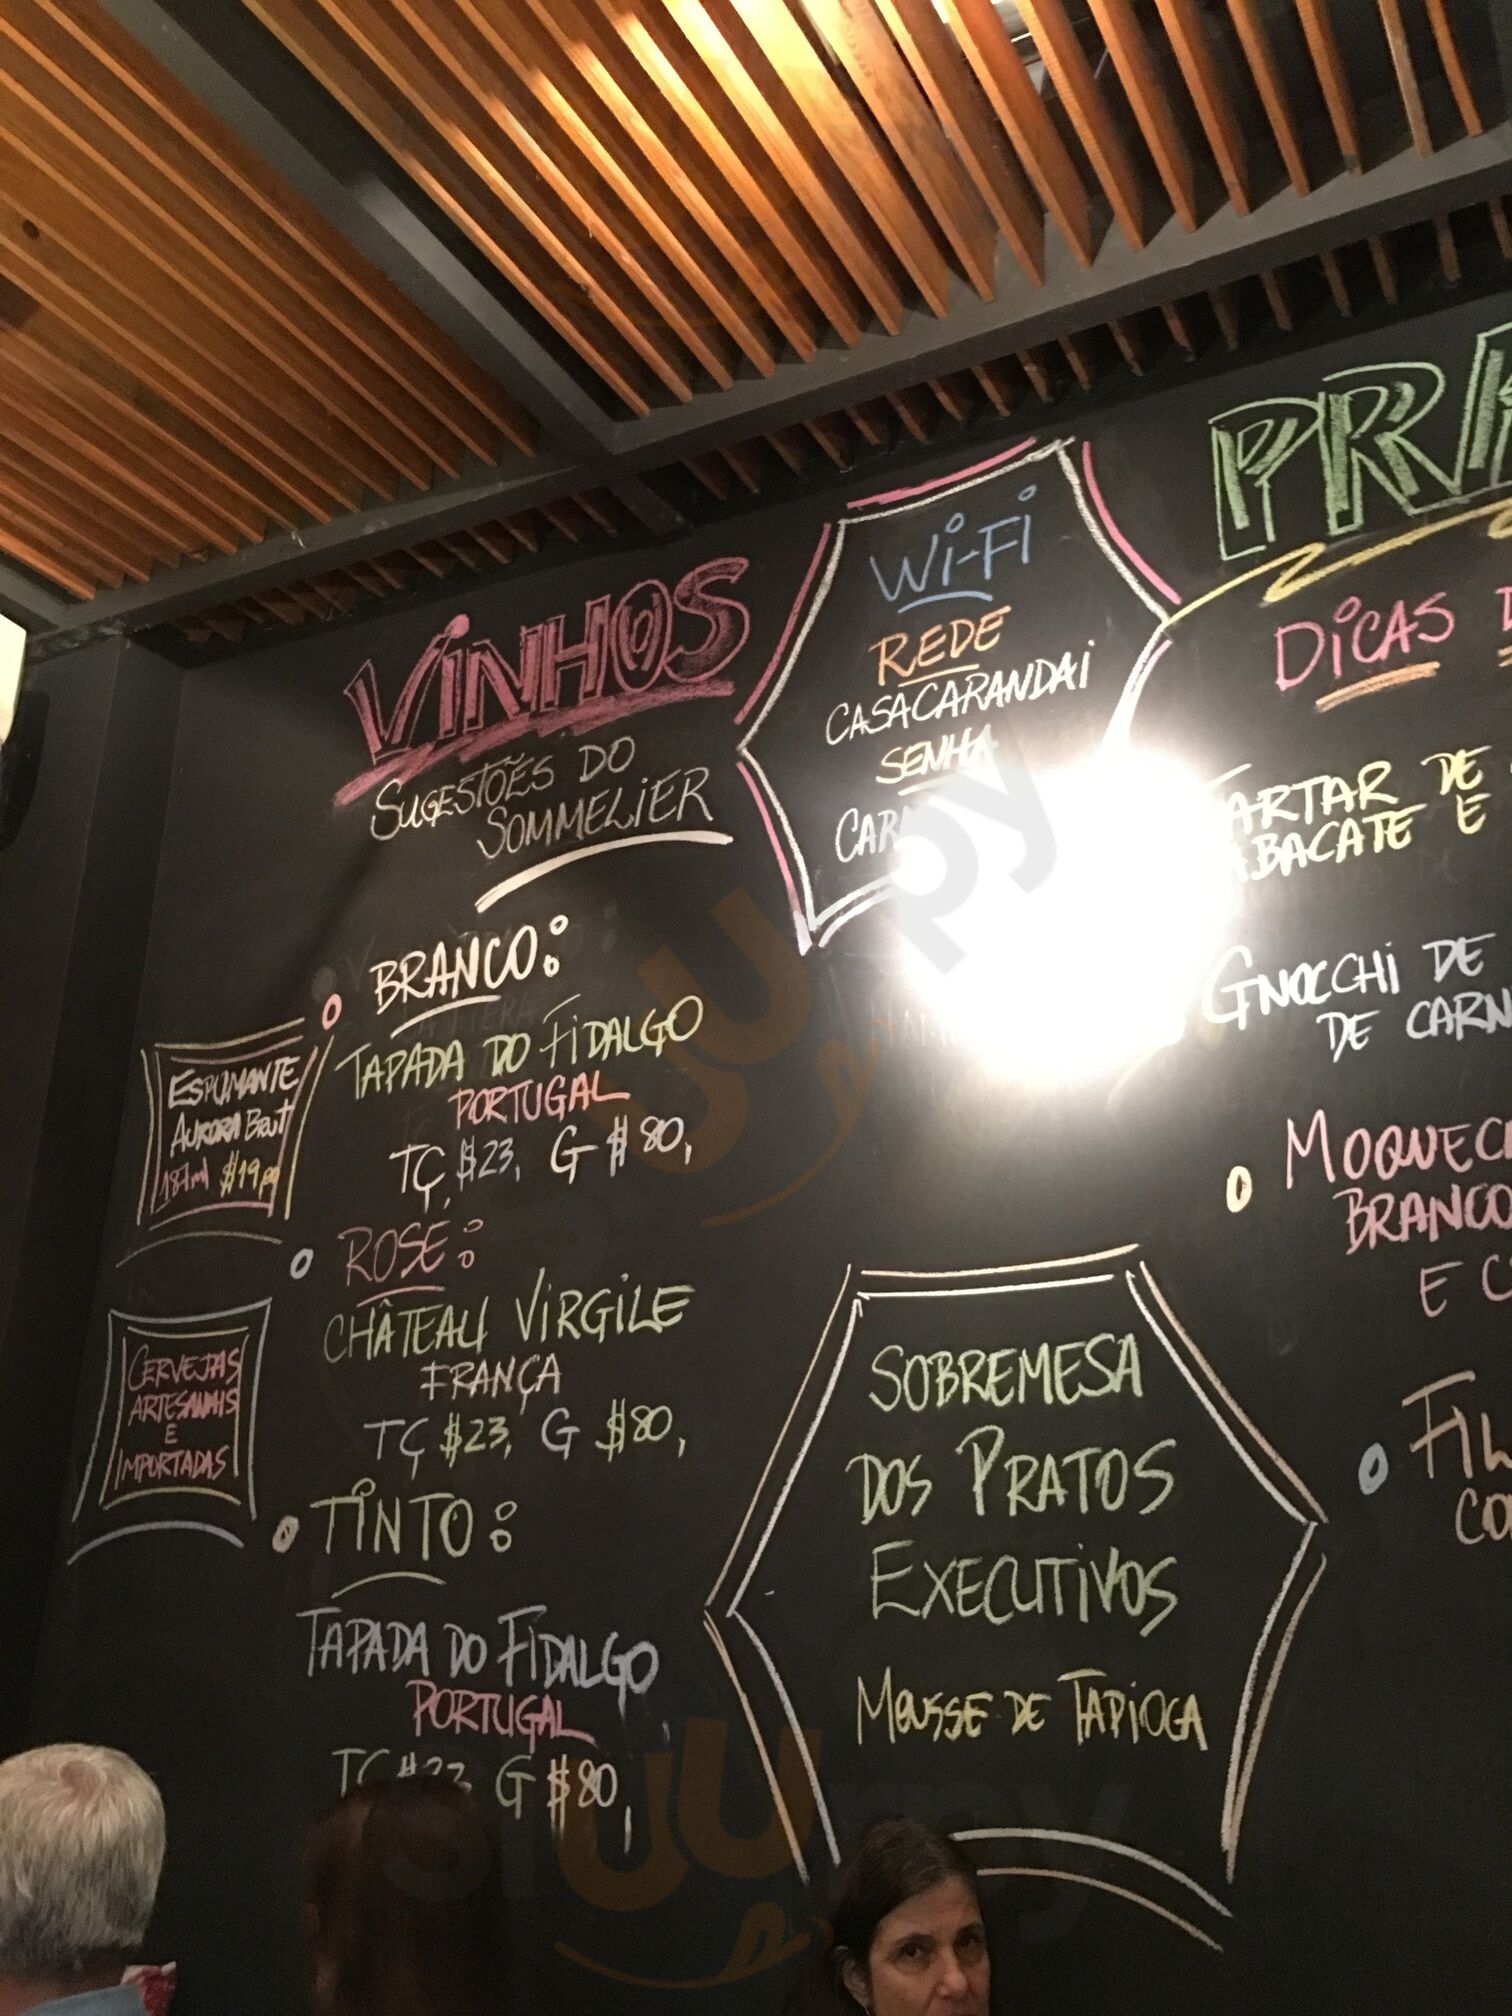 VINHOS
SUGESTÕES DO
SOMMELIER
BRANCO:
TAPADA DO FIDALGO
PORTUGAL
TÇ $23, G $80,
ROSE:
CHÂTEAU VIRGILE
FRANÇA
TÇ $23, G $80,
TINTO:
TAPADA DO FIDALGO
PORTUGAL
TÇ G $80,
ESPUMANTE
AURORA BRUT
187ml
CERVEJAS
ARTESANAIS
E
IMPORTADAS
Wi-Fi
REDE
CASACARANDAI
SENHA
SOBREMESA
DOS PRATOS
EXECUTIVOS
MOUSSE DE TAPIOCA
DICAS
TARTAR DE
ABACATE E
GNOCCHI DE
DE
BRANCO
E